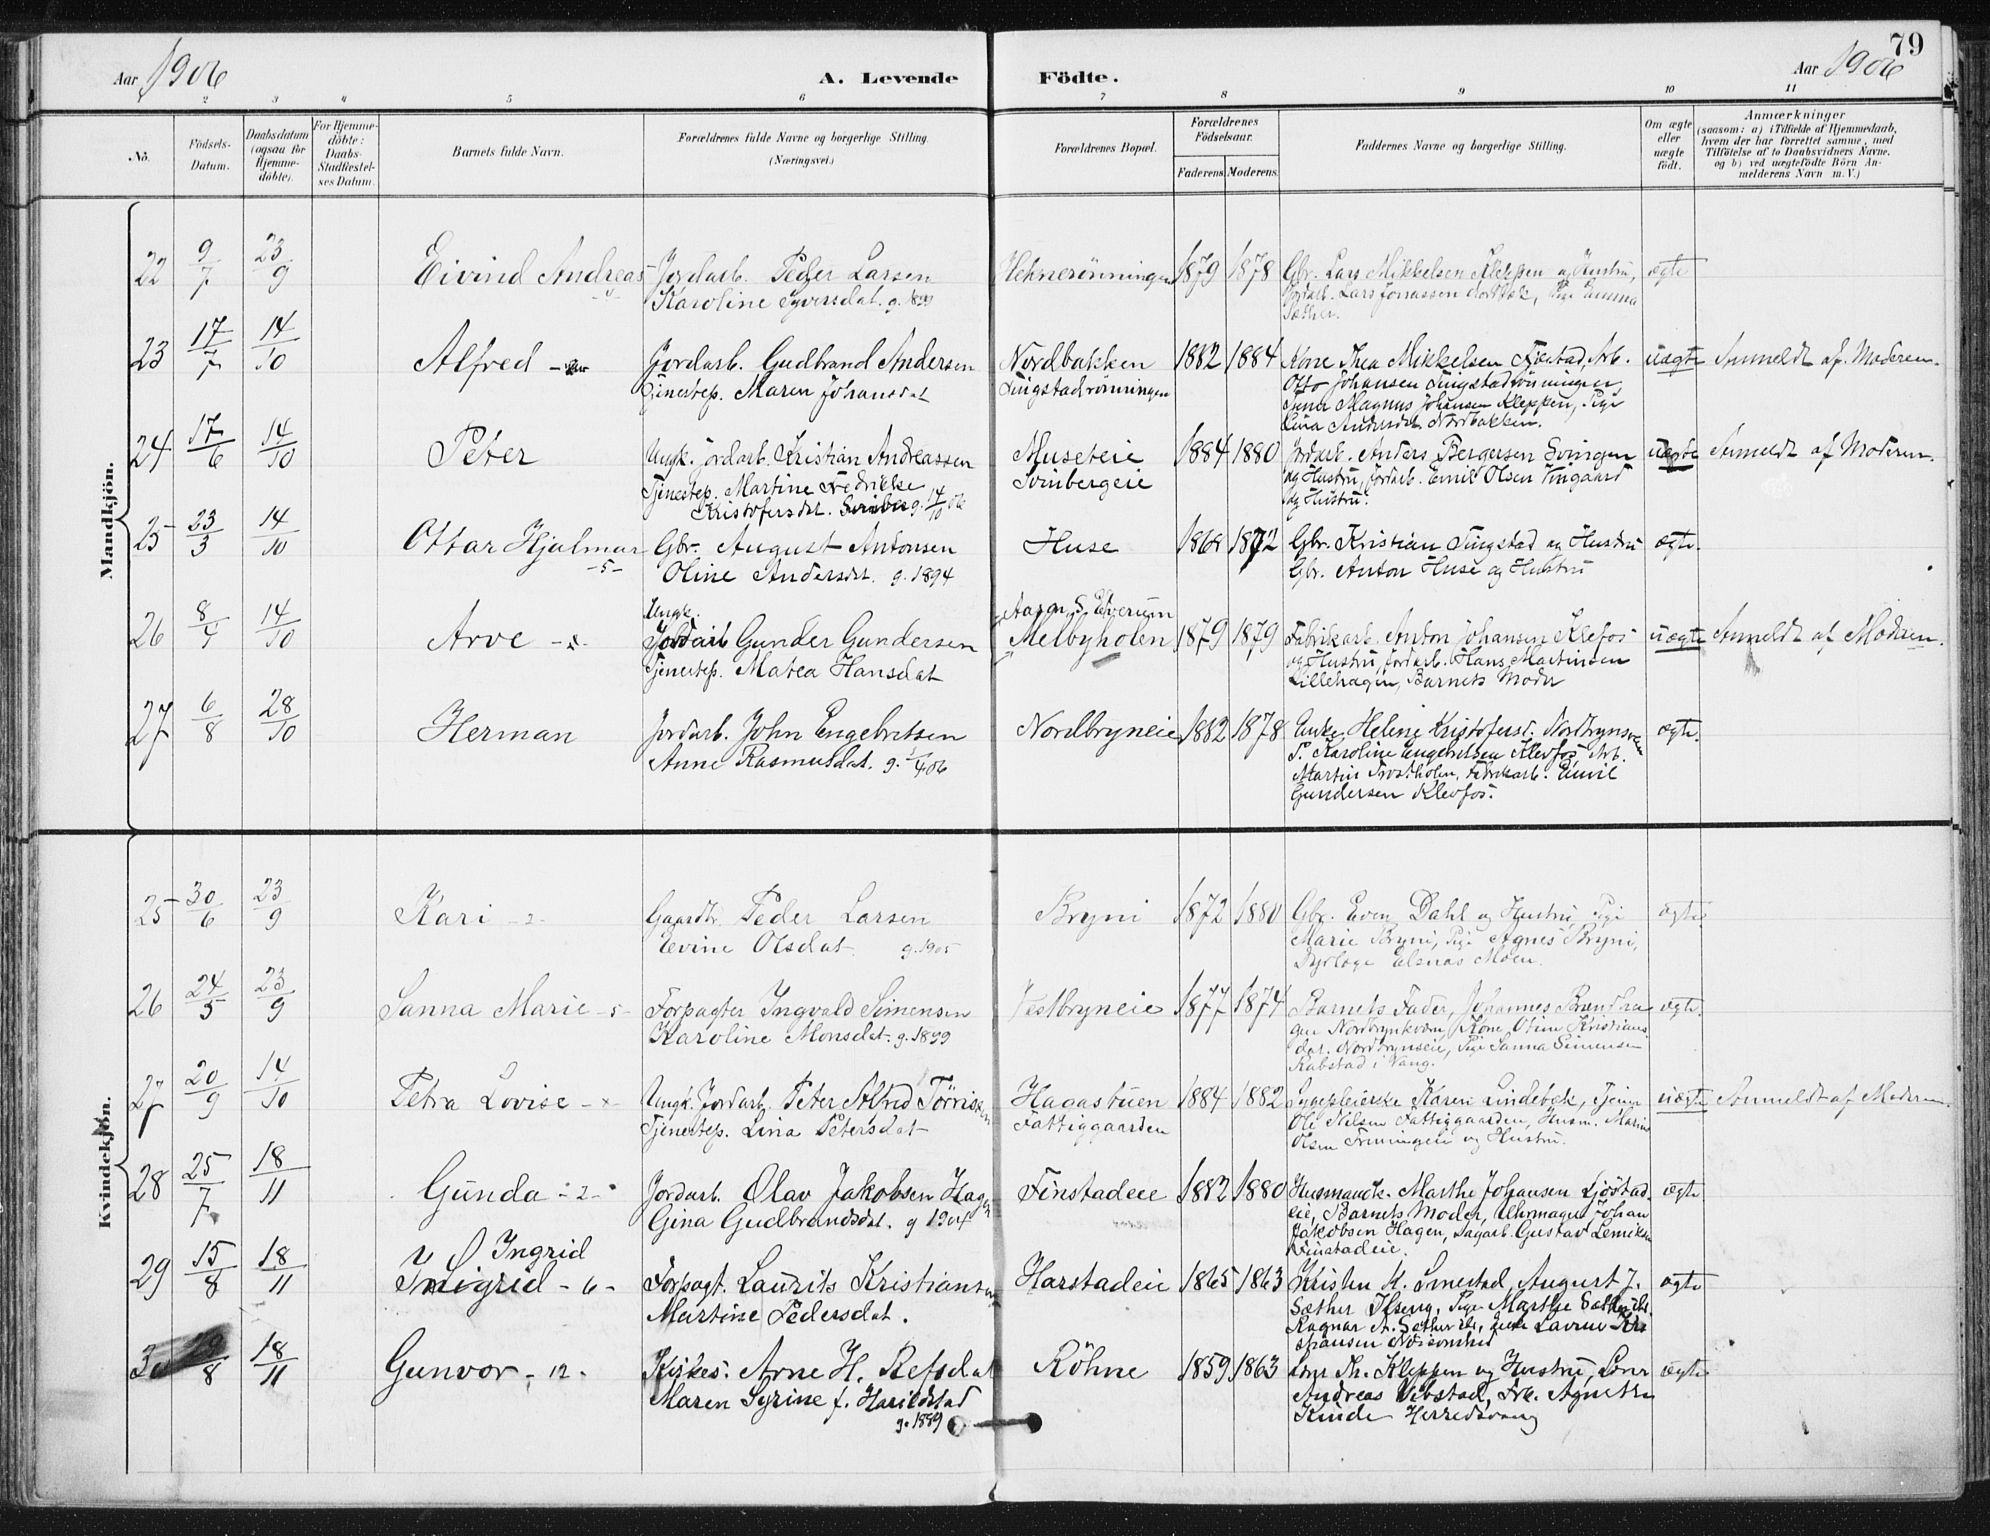 79
Aar 1906
A. Levende Födte.
Aar 1906
2 3 4 5 6 7 8 9 10 11
No. Födsels-Datum. Daabsdatum (ogsaa for Hjemme-döbte). For Hjemme-döbte: Daabs-Stadfæstel-ses Datum. Barnets fulde Navn. Forældrenes fulde Navne og borgerlige Stilling. (Næringsvei.) Forældrenes Bopæl. Forældrenes Födselsaar. Faderens. Moderens. Faddernes Navne og borgerlige Stilling. Om ægte eller uægte födt. Anmærkninger (saasom: a) i Tilfælde af Hjemmedaab, hvem der har forrettet samme, med Tilföielse af to Daabsvidners Navne, og b) ved uægtefödte Börn An-melderens Navn m. V.)
Mandkjön.
22 9/7 23/9 Eivind Andreas Jordarb. Peder Larsen Hehnerönningen 1879 1878 Gbr. Lars Mikkelsen Kleppen og Hustru, ægte
Karoline g. 1899 Jordarb. Lars Jonassen Pige Emma
Sæther.
23 17/7 14/10 Alfred Jordarb. Gudbrand Andersen Nordbakken 1882 1884 Kone Thea Mikkelsen Fjestad, Arb. uægte Anmeldt af Moderen.
Tjenestep. Maren Johansdat Tingstadrönningen Otto Johansen Tingstadrönningen,
Magnus Johansen Kleppen, Pige
Lina Andersdat. Nordbakken.
24 17/6 14/10 Peter Ungk. jordarb. Kristian Andreassen Museteie 1884 1880 Jordarb. Anders Bergersen Svingen uægte Anmeldt af Moderen.
Tjenestep. Martine Fredrikke Svinbergeie og Hustru, Jordarb. Emil Olsen Vingaard
Kristofersdat. g. 14/10 06 og Hustru.
25 23/3 14/10 Ottar Hjalmar Gbr. August Antonsen Huse 1868 1872 Gbr. Kristian Tingstad og Hustru ægte.
-5- Oline Andersdat. g. 1894 Gbr. Anton Huse og Hustru
Ungk. Aasen, S. Elverum
26 8/4 14/10 Arve Jordarb Gunder Gundersen Melbyholen 1879 1879 Fabrikarb. Anton Johansen Klefos uægte Anmeldt af Moderen.
Tjenestep. Matea Hansdat og Hustru, Jordarb. Hans Martinsen
Lillehagen, Barnets Moder
27 6/8 28/10 Herman Jordarb. John Engebretsen Nordbryneie 1882 1878 Enke Helene Kristofersd. ægte.
Anne Rasmusdat. g. 1/4 06 P. Karoline Engebretsen Klevfos, Arb.
Martin Trostholen, Fabrikarb. Emil
Gundersen Klevfos.
Kvindekjön.
25 30/6 23/9 Kari -2- Gaardbr. Peder Larsen Bryni 1872 1880 Gbr. Even Dahl og Hustru, Pige ægte.
Evine Olsdat g. 1905 Marie Bryni, Pige Agnes Bryni,
Dyrlæge Elsnas Moen.
26 24/5 23/9 Sanna Marie -5- Forpagter Ingvald Simensen Vestbryneie 1877 1874 Barnets Fader, Johannes ægte.
Karoline Monsdat. g. 1899 Nordbrynkværn, Kone Otine Kristians
dat. Nordbrynseie, Pige Sanna Simensen
Rabstad i Vang.
27 20/9 14/10 Petra Lovise Ungk. Jordarb. Peter Alfred Hagastuen 1884 1882 Sygepleierske Karen Lindebæk, Tjener uægte Anmeldt af Moderen.
Tjenestep. Lina Petersdat Fattiggaarden Ole Nilsen Fattiggaarden, Husm. Marius
Olsen og Hustru.
28 25/7 18/11 Gunda -2- Jordarb. Olav Jakobsen Hagen Finstadeie 1882 1880 Husmandk. Marthe Johansen ægte
Gina Gudbrandsdat. g 1904 eie, Barnets Moder, Uhrmager Johan
Jakobsen Hagen, Sagarb. Gustav
Finstadeie.
Ingrid
29 15/8 18/11 Sigrid -6- Forpagt. Laurits Kristiansen Harstadeie 1865 1863 Kristen K. Smestad, August J. ægte
Martine Pedersdat. Sæther Ilseng, Pige Marthe
Ragnar A.
30 8 18/11 Gunvor -12- Kirkes: Arne H. Refsdal Röhne 1859 1863 Th. Kleppen og Hustru, ægte
Maren Syrine f. Harildstad Andreas Vibstad, Frk. Agnethe
g. 1889 Kinde Herredsvang